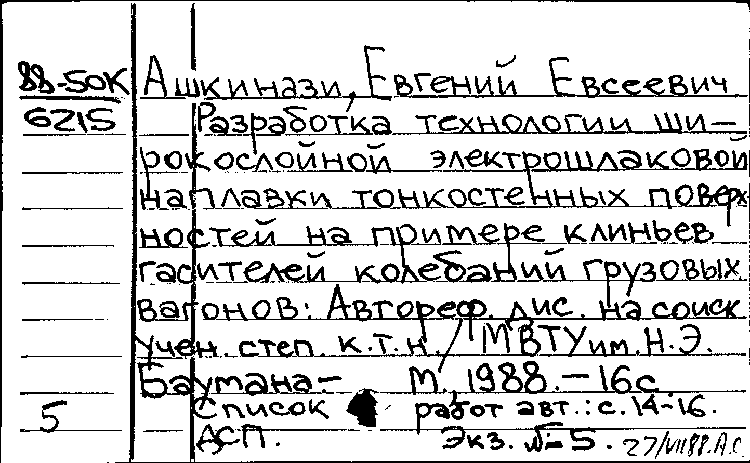 88-50К Ашкинази, Евгений Евсеевич
6215 Разработка технологии ши-
рокослойной электрошлаковой
наплавки тонкостенных поверх
ностей на примере клиньев
гасителей колебаний грузовых
вагонов: Автореф. дис. на соиск
учен. степ. к.т.н. / МВТУ им. Н.Э.
Баумана- М., 1988. – 16с
5 Список работ авт.: с. 14-16.
ДСП. Экз. № 5. 27/VII 88. А.С.